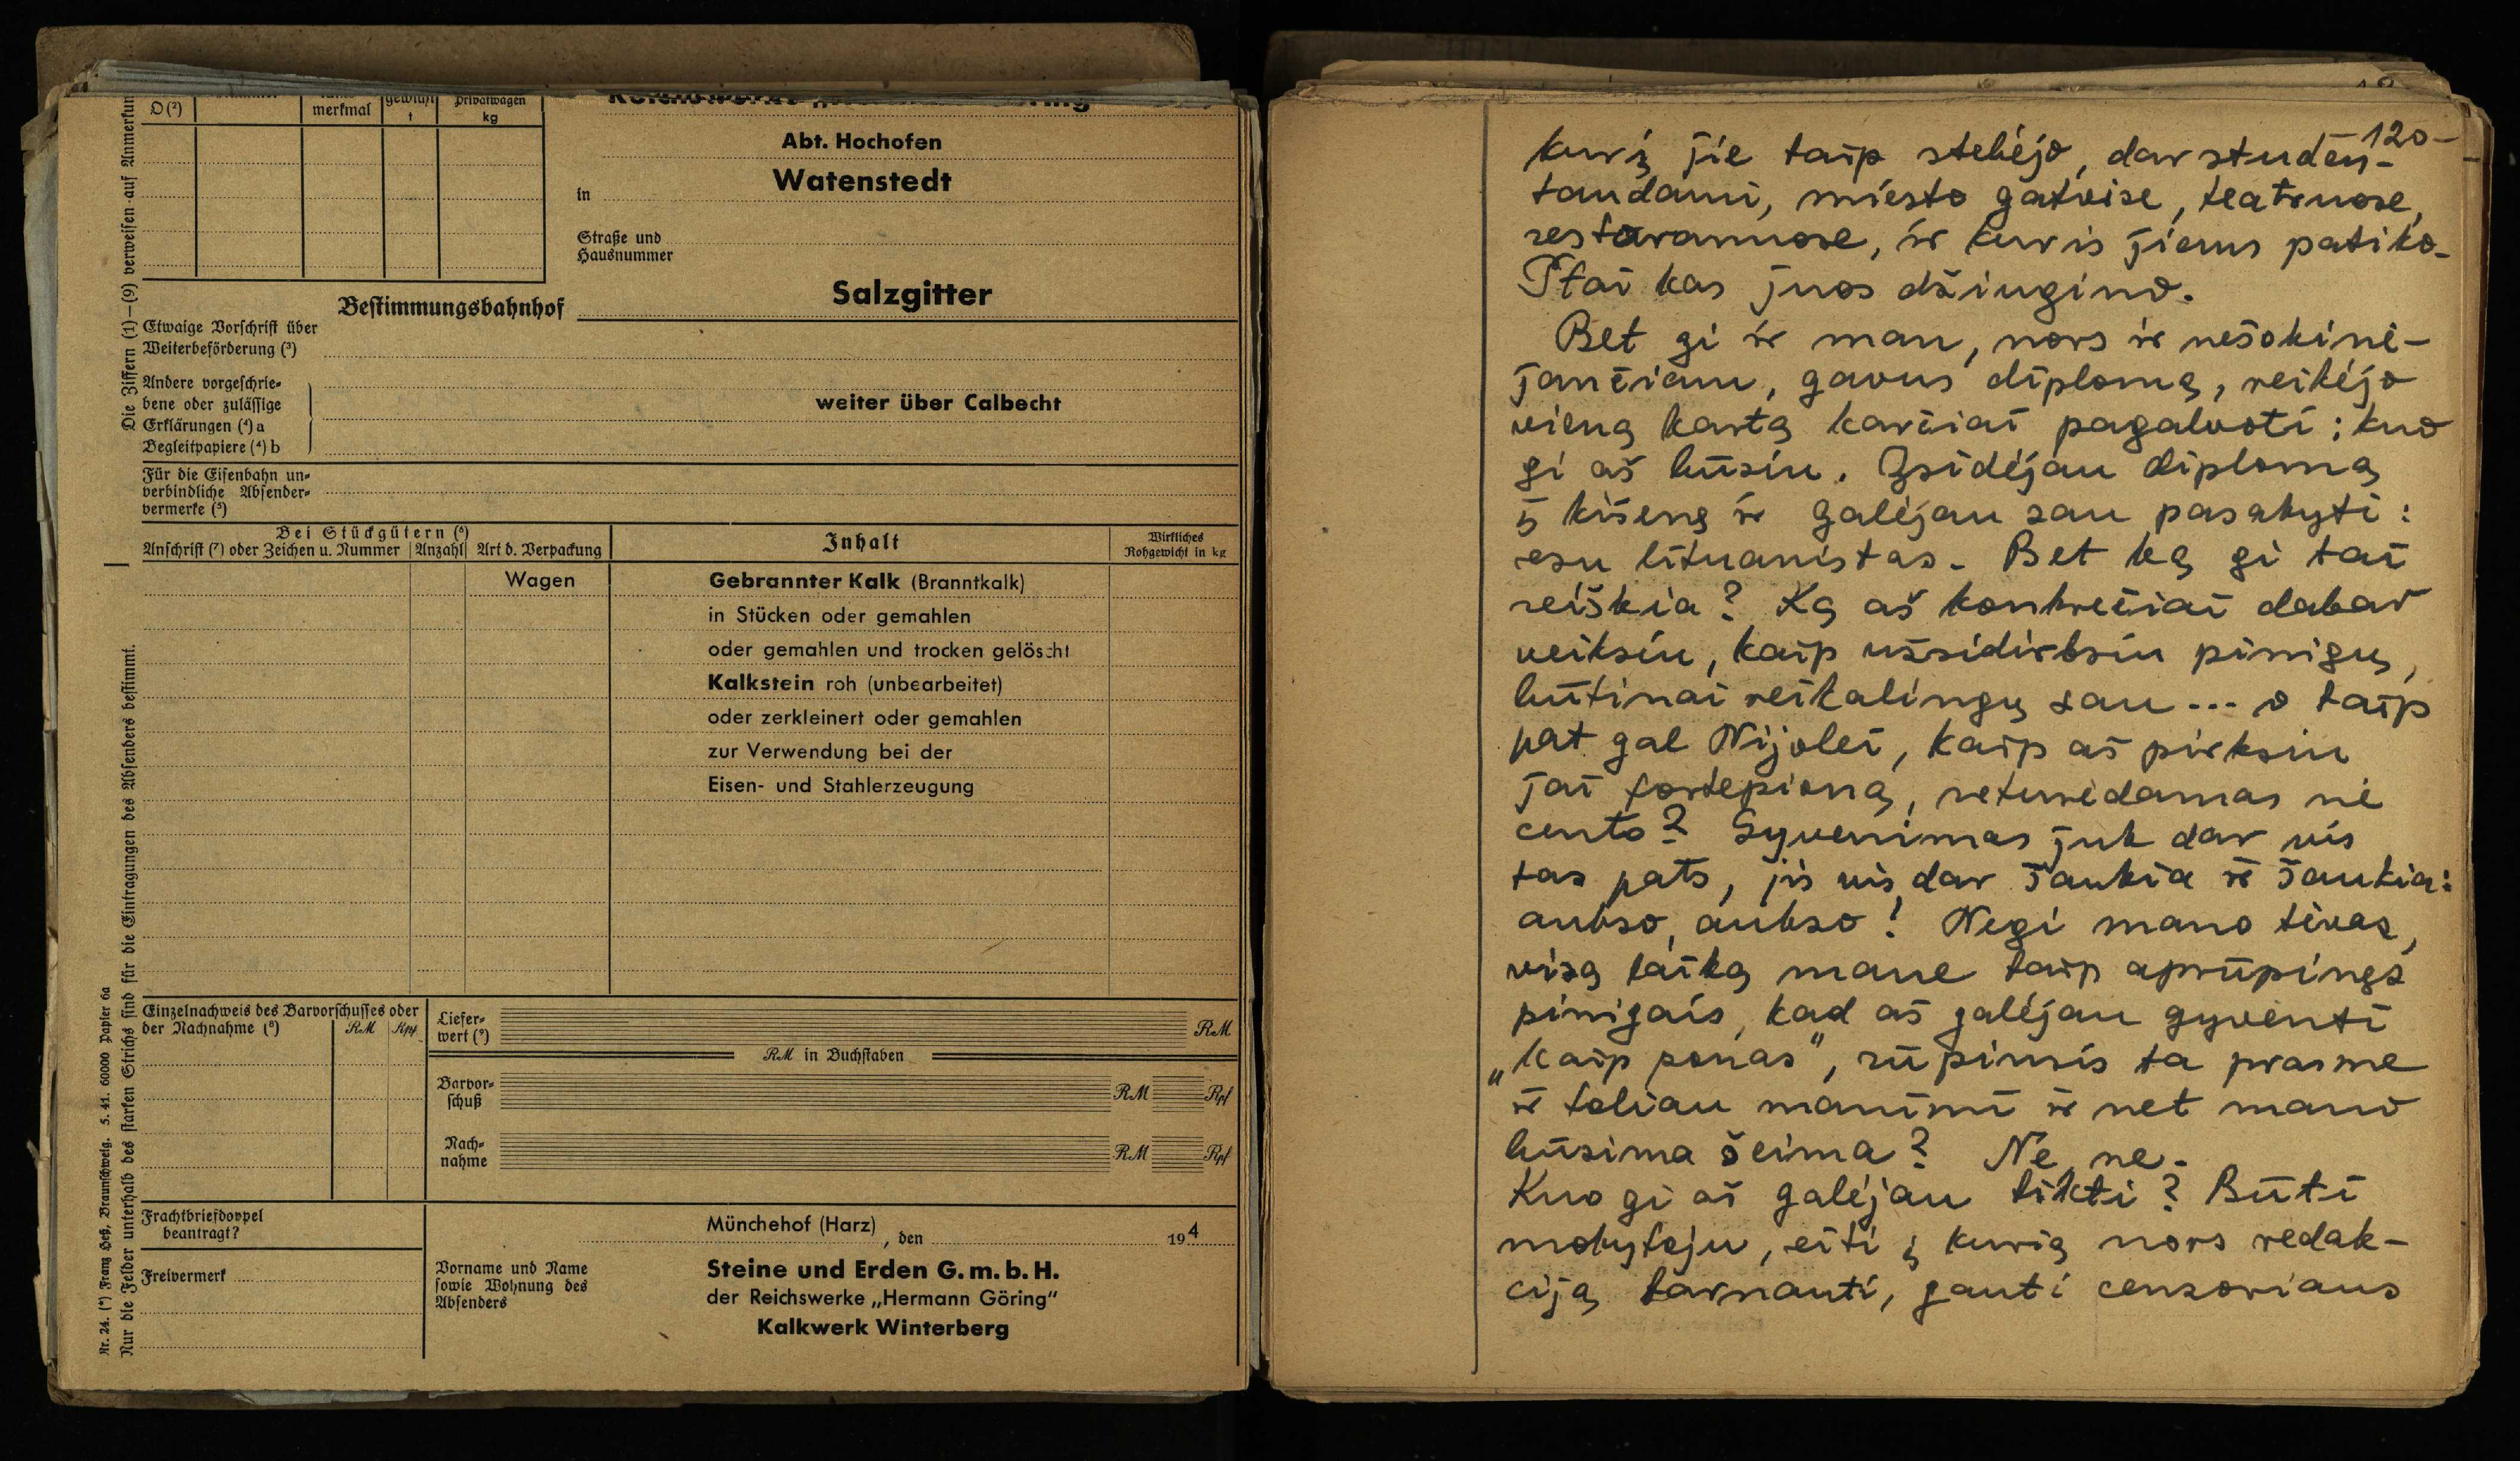 D (²)
merkmal
gewicht
t
Privatwagen
kg
Abt. Hochofen
Watenstedt
in
Straße und
Hausnummer
Salzgitter
Bestimmungsbahnhof
Etwaige Vorschrift über
Weiterbeförderung (³)
Andere vorgeschrie-
bene oder zulässige
Erklärungen (⁴) a
Begleitpapiere (⁴) b
weiter über Calbecht
Für die Eisenbahn un-
verbindliche Absender-
vermerke (⁵)
Bei Stückgütern (⁶)
Anschrift (⁷) oder Zeichen u. Nummer
Anzahl
Art d. Verpackung
Inhalt
Wirkliches
Rohgewicht in kg
Wagen
Gebrannter Kalk (Branntkalk)
in Stücken oder gemahlen
oder gemahlen und trocken gelöscht
Kalkstein roh (unbearbeitet)
oder zerkleinert oder gemahlen
zur Verwendung bei der
Eisen- und Stahlerzeugung
Einzelnachweis des Barvorschusses oder
der Nachnahme (⁸)
RM
Rpf
Liefer-
wert (⁹)
RM
RM in Buchstaben
Barvor-
schuß
RM
Rpf
Nach-
nahme
RM
Rpf
Frachtbriefdoppel
beantragt?
Freivermerk
Münchehof (Harz)
, den
194
Vorname und Name
sowie Wohnung des
Absenders
Steine und Erden G. m. b. H.
der Reichswerke „Hermann Göring“
Kalkwerk Winterberg
Die Ziffern (1)—(9) verweisen auf Anmerkun
Nur die Felder unterhalb des starken Strichs sind für die Eintragungen des Absenders bestimmt.
Nr. 24. (*) Franz Heß, Braunschweig. 5. 41. 60000 Papier 6a
120-
kurį jie taip stebėjo, dar studen-
taudami, miesto gatvėse, teatruose,
restoranuose, ir kuris jiems patiko.
Štai kas juos džiugino.
Bet gi ir man, nors ir nešokinė-
jančiam, gavus diplomą, reikėjo
vieną kartą karčiai pagalvoti: kuo
gi aš būsiu. Įsidėjau diplomą
į kišenę ir galėjau sau pasakyti:
esu lituanistas. Bet ką gi tai
reiškia? Ką aš konkrečiai dabar
veiksiu, kaip užsidirbsiu pinigų,
būtinai reikalingų sau... o taip
pat gal Nijolei, kaip aš pirksiu
jai fortepioną, neturėdamas nė
cento? Gyvenimas juk dar vis
tas pats, jis vis dar šaukia ir šaukia:
aukso, aukso! Negi mano tėvas,
visą laiką mane taip aprūpinęs
pinigais, kad aš galėjau gyventi
„kaip ponas“, rūpinsis ta prasme
ir toliau manimi ir net mano
būsima šeima? Ne, ne.
Kuo gi aš galėjau tikti? Būti
mokytoju, eiti į kurią nors redak-
ciją tarnauti, gauti cenzoriaus